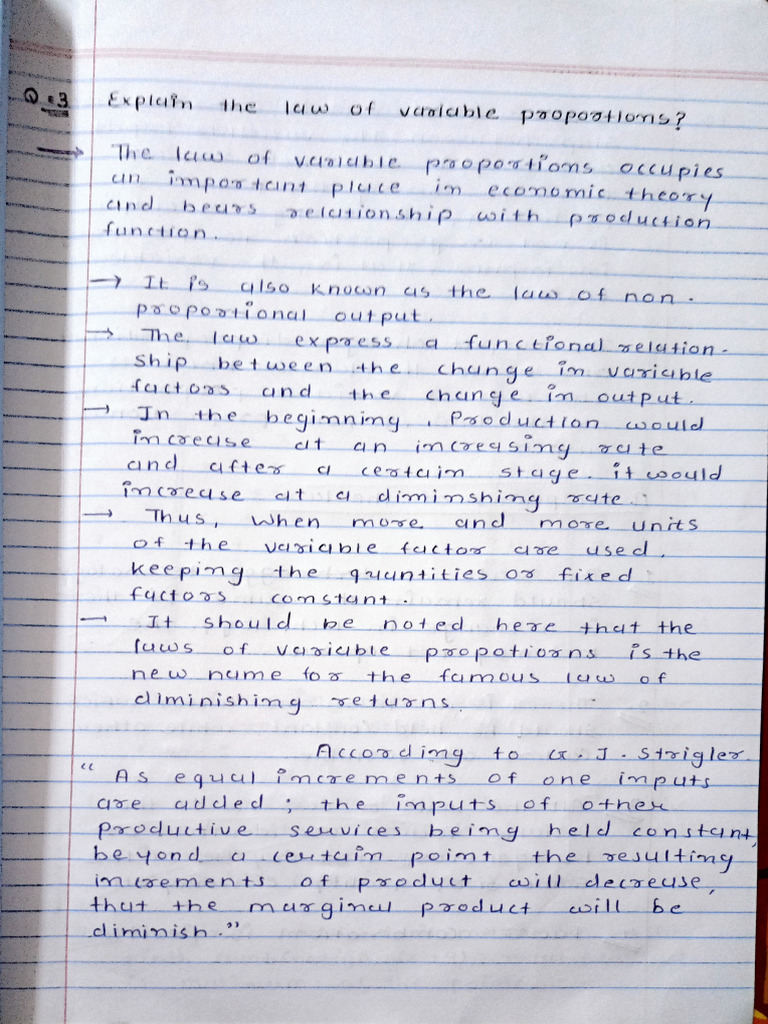 Q=3 Explain the law of variable proportions?
→ The law of variable proportions occupies
an important place in economic theory
and bears relationship with production
function.
→ It is also known as the law of non-
proportional output.
→ The law express a functional relation-
ship between the change in variable
factors and the change in output.
→ In the beginning, Production would
increase at an increasing rate
and after a certain stage. it would
increase at a diminshing rate.
→ Thus, when more and more units
of the variable factor are used,
keeping the quantities of fixed
factors constant.
→ It should be noted here that the
laws of variable propotiorns is the
new name for the famous law of
diminishing returns.
According to G. J. Strigler.
"As equal increments of one inputs
are added; the inputs of other
productive services being held constant,
beyond a certain point the resulting
increments of product will decrease,
that the marginal product will be
diminish."